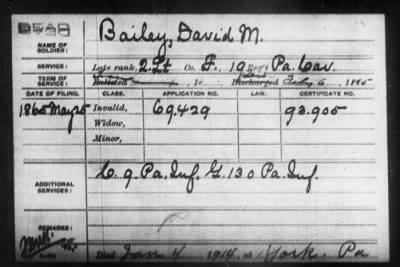 DEAD
Bailey, David M.
NAME OF SOLDIER:
SERVICE: Late rank, 2. Lt Co. F., 19 Reg't Pa. Cav.
TERM OF SERVICE: Enlisted , 1 Discharged Feby 6, 1865
DATE OF FILING. CLASS. APPLICATION NO. LAW. CERTIFICATE NO.
1865 May 25 Invalid, 69.429 93.905
Widow,
Minor,
ADDITIONAL SERVICES: C. 9. Pa. Inf. G. 130 Pa. Inf.
REMARKS:
Died Jan 4, 1914, at York, Pa